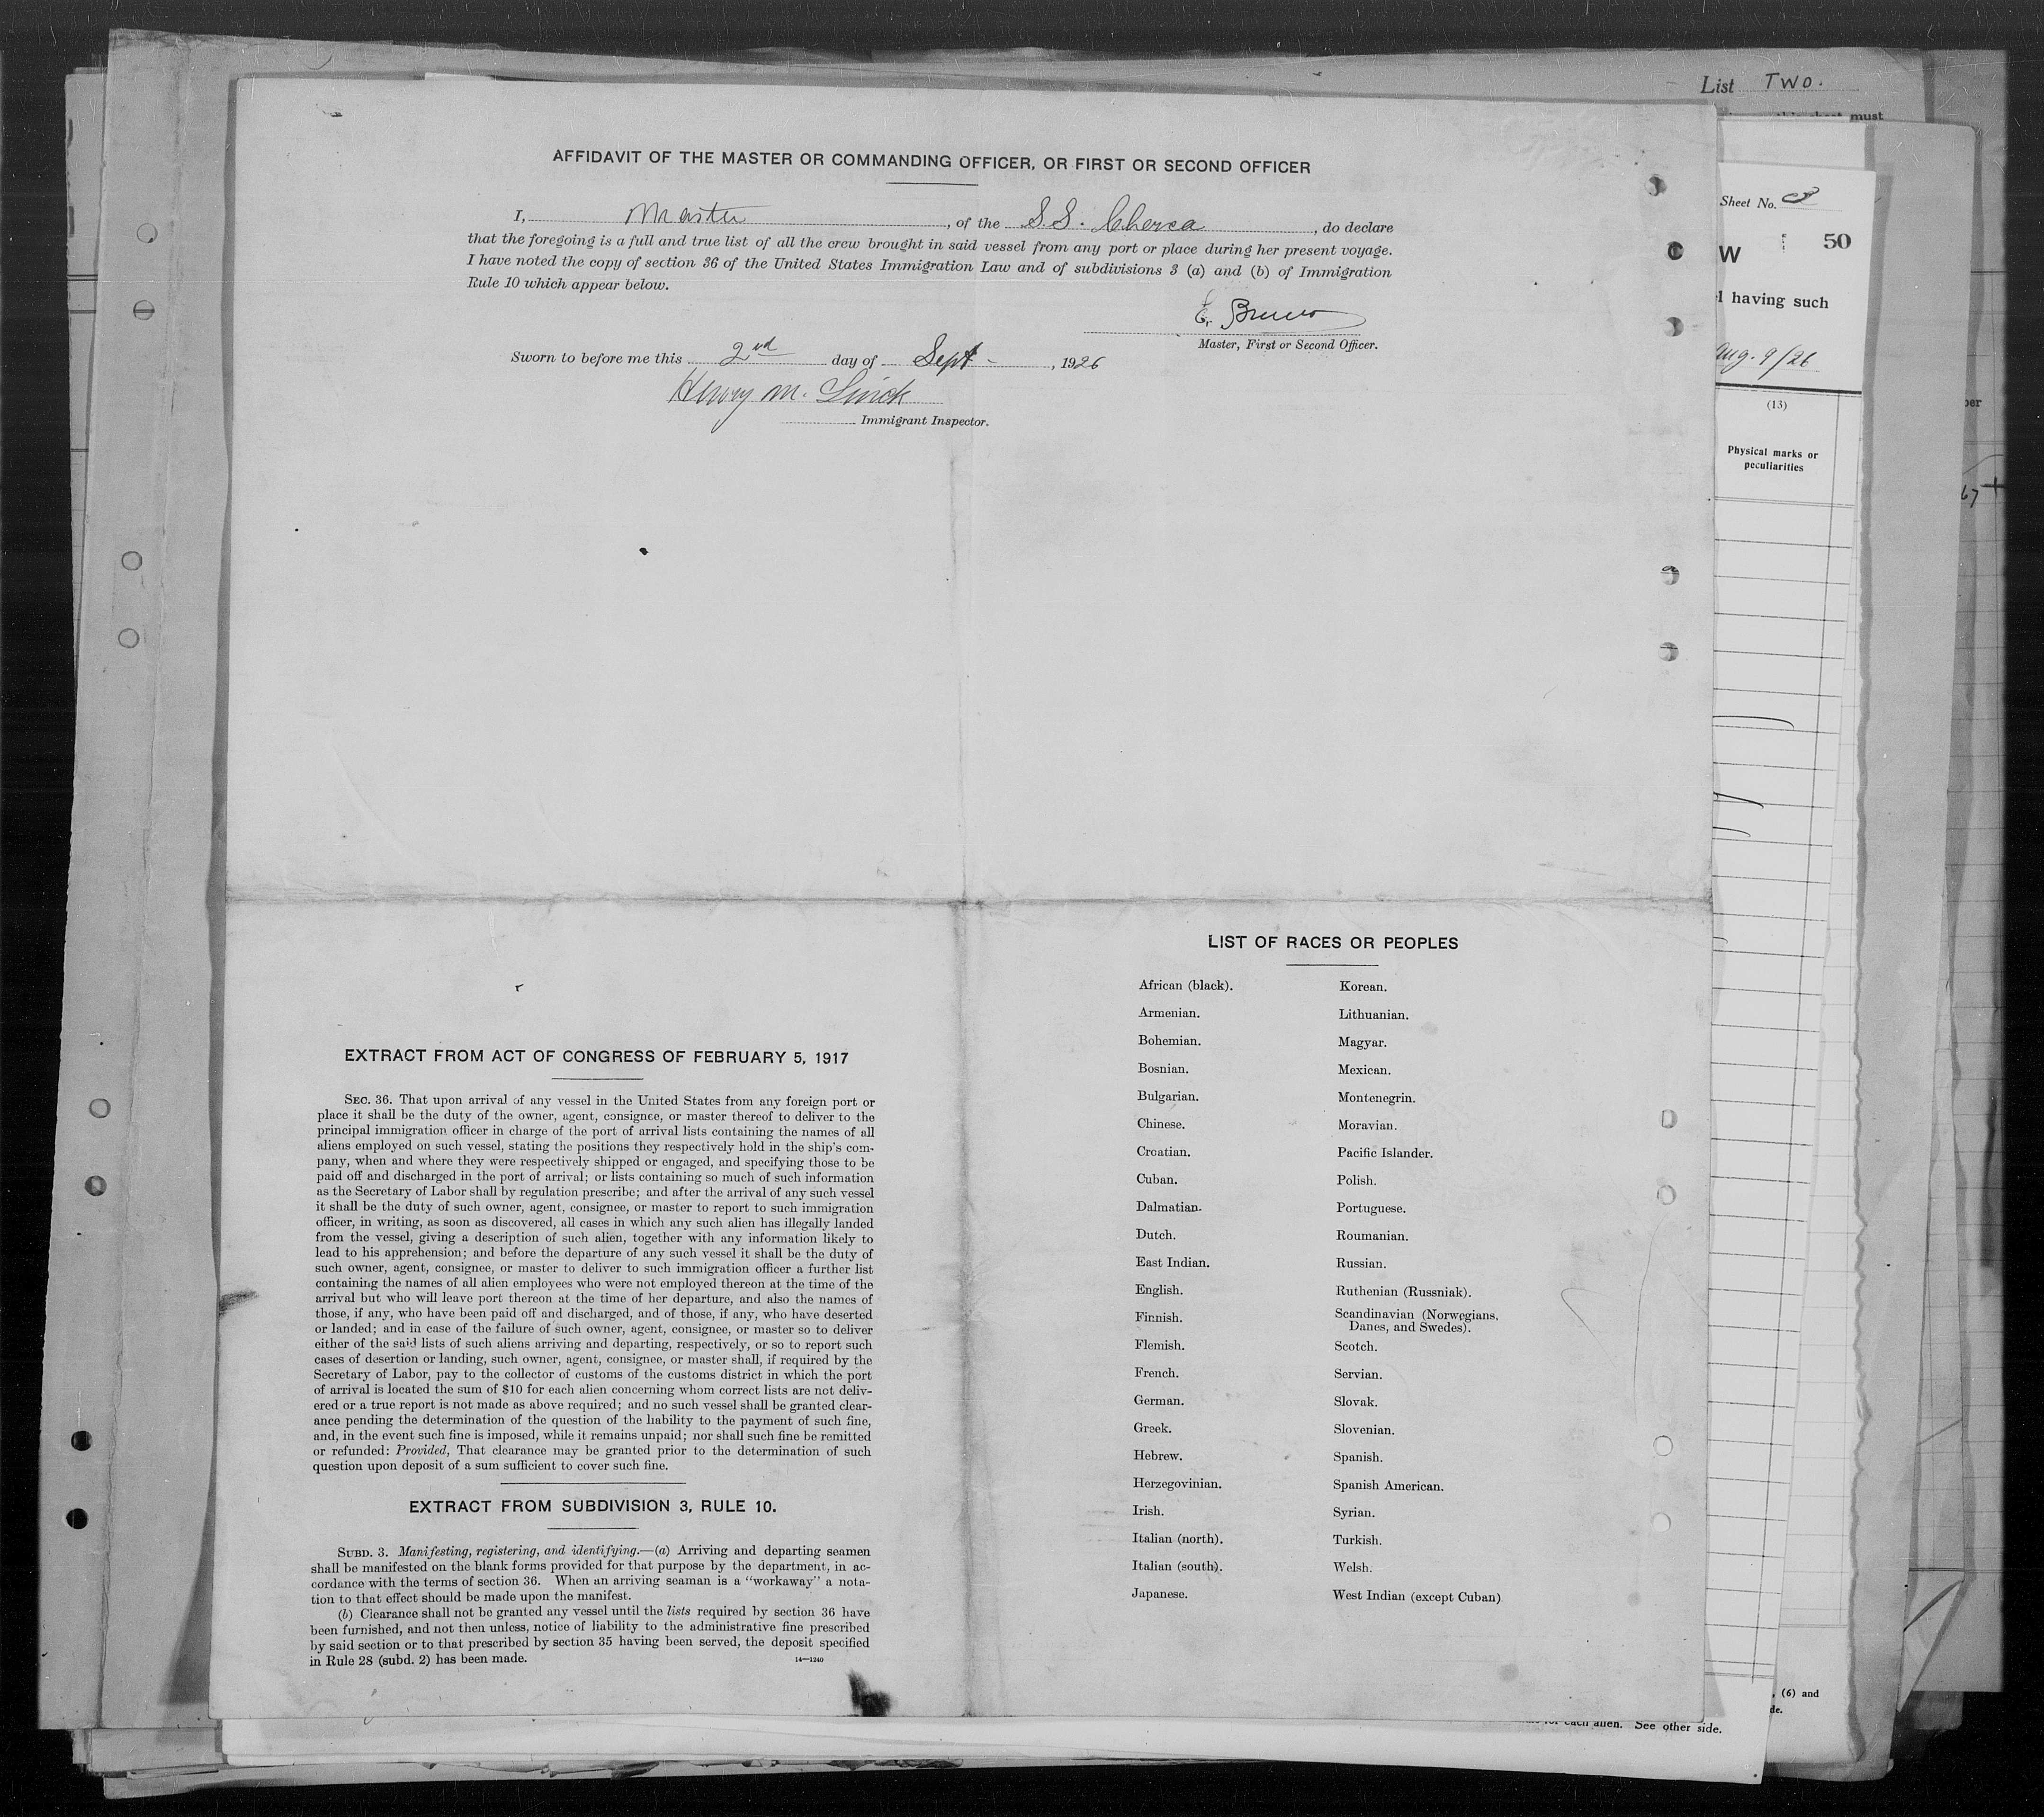 List Two.
must
Sheet No. 3
W 50
having such
Aug. 9/26
(13)
Physical marks or
peculiarities
AFFIDAVIT OF THE MASTER OR COMMANDING OFFICER, OR FIRST OR SECOND OFFICER
I, Master, of the S.S. Cherca, do declare
that the foregoing is a full and true list of all the crew brought in said vessel from any port or place during her present voyage.
I have noted the copy of section 36 of the United States Immigration Law and of subdivisions 3 (a) and (b) of Immigration
Rule 10 which appear below.
E. Bruno
Master, First or Second Officer.
Sworn to before me this 2nd day of Sept - , 1926
Henry M.
Immigrant Inspector.
EXTRACT FROM ACT OF CONGRESS OF FEBRUARY 5, 1917
SEC. 36. That upon arrival of any vessel in the United States from any foreign port or
place it shall be the duty of the owner, agent, consignee, or master thereof to deliver to the
principal immigration officer in charge of the port of arrival lists containing the names of all
aliens employed on such vessel, stating the positions they respectively hold in the ship's com-
pany, when and where they were respectively shipped or engaged, and specifying those to be
paid off and discharged in the port of arrival; or lists containing so much of such information
as the Secretary of Labor shall by regulation prescribe; and after the arrival of any such vessel
it shall be the duty of such owner, agent, consignee, or master to report to such immigration
officer, in writing, as soon as discovered, all cases in which any such alien has illegally landed
from the vessel, giving a description of such alien, together with any information likely to
lead to his apprehension; and before the departure of any such vessel it shall be the duty of
such owner, agent, consignee, or master to deliver to such immigration officer a further list
containing the names of all alien employees who were not employed thereon at the time of the
arrival but who will leave port thereon at the time of her departure, and also the names of
those, if any, who have been paid off and discharged, and of those, if any, who have deserted
or landed; and in case of the failure of such owner, agent, consignee, or master so to deliver
either of the said lists of such aliens arriving and departing, respectively, or so to report such
cases of desertion or landing, such owner, agent, consignee, or master shall, if required by the
Secretary of Labor, pay to the collector of customs of the customs district in which the port
of arrival is located the sum of $10 for each alien concerning whom correct lists are not deliv-
ered or a true report is not made as above required; and no such vessel shall be granted clear-
ance pending the determination of the question of the liability to the payment of such fine,
and, in the event such fine is imposed, while it remains unpaid; nor shall such fine be remitted
or refunded: Provided, That clearance may be granted prior to the determination of such
question upon deposit of a sum sufficient to cover such fine.
EXTRACT FROM SUBDIVISION 3, RULE 10.
SUBD. 3. Manifesting, registering, and identifying.—(a) Arriving and departing seamen
shall be manifested on the blank forms provided for that purpose by the department, in ac-
cordance with the terms of section 36. When an arriving seaman is a "workaway" a nota-
tion to that effect should be made upon the manifest.
(b) Clearance shall not be granted any vessel until the lists required by section 36 have
been furnished, and not then unless, notice of liability to the administrative fine prescribed
by said section or to that prescribed by section 35 having been served, the deposit specified
in Rule 28 (subd. 2) has been made.
14—1240
LIST OF RACES OR PEOPLES
African (black).
Armenian.
Bohemian.
Bosnian.
Bulgarian.
Chinese.
Croatian.
Cuban.
Dalmatian.
Dutch.
East Indian.
English.
Finnish.
Flemish.
French.
German.
Greek.
Hebrew.
Herzegovinian.
Irish.
Italian (north).
Italian (south).
Japanese.
Korean.
Lithuanian.
Magyar.
Mexican.
Montenegrin.
Moravian.
Pacific Islander.
Polish.
Portuguese.
Roumanian.
Russian.
Ruthenian (Russniak).
Scandinavian (Norwegians,
Danes, and Swedes).
Scotch.
Servian.
Slovak.
Slovenian.
Spanish.
Spanish American.
Syrian.
Turkish.
Welsh.
West Indian (except Cuban)
, (6) and
de.
for each alien. See other side.